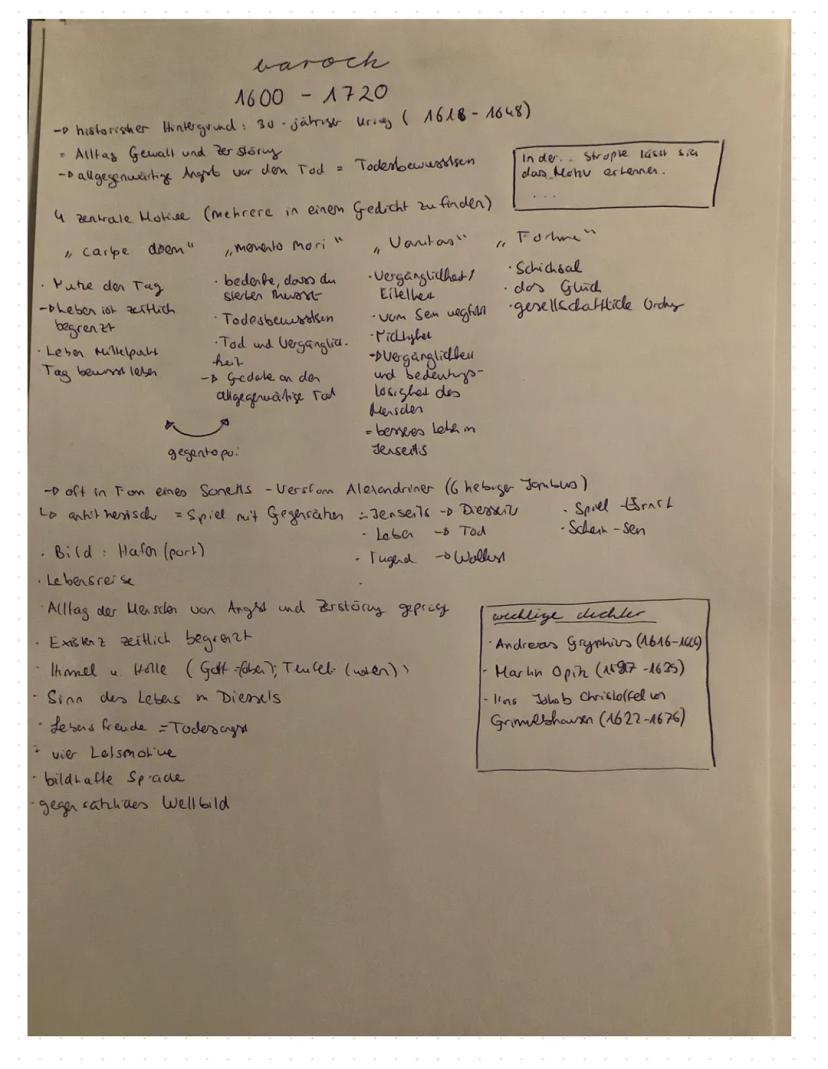 barock
1600 - 1720
-> historischer Hintergrund: 30-jähriger Krieg (1618-1648)
= Alltag Gewalt und Zerstörung
-> allgegenwärtige Angst vor dem Tod = Todesbewusstsein
In der... Strophe lässt sich
das Motiv erkennen.
...
4 zentrale Motive (mehrere in einem Gedicht zu finden)
"carpe diem"
· Nutze den Tag
-> Leben ist zeitlich
begrenzt
· Leben Mittelpunkt
Tag bewusst leben
"memento mori"
· bedenke, dass du
sterben musst
· Todesbewusstsein
· Tod und Vergänglich-
keit
-> Gedanke an den
allgegenwärtige Tod
gegentopoi
"Vanitas"
· Vergänglichkeit/
Eitelkeit
· vom Sein
· Nichtigkeit
-> Vergänglichkeit
und bedeutungs-
losigkeit des
Menschen
= besseres Leben im
Jenseits
"Fortuna"
· Schicksal
· das Glück
· gesellschaftliche Ordnung
-> oft in Form eines Sonetts - Versform Alexandriner (6 hebiger Jambus)
↳ antithetisch = Spiel mit Gegensätzen :· Jenseits -> Diesseits
· Leben -> Tod
· Tugend -> Wollust
· Spiel - Ernst
· Schein - Sein
· Bild: Hafen (port)
· Lebensreise
· Alltag der Menschen von Angst und Zerstörung geprägt
· Existenz zeitlich begrenzt
· Himmel u. Hölle (Gott (oben); Teufel (unten))
· Sinn des Lebens im Diesseits
· Lebensfreude = Todesangst
· vier Leitmotive
· bildhafte Sprache
· gegensätzliches Weltbild
wichtige dichter
· Andreas Gryphius (1616-1664)
· Martin Opitz (1597-1639)
· Hans Jakob Christoffel von
Grimmelshausen (1622-1676)